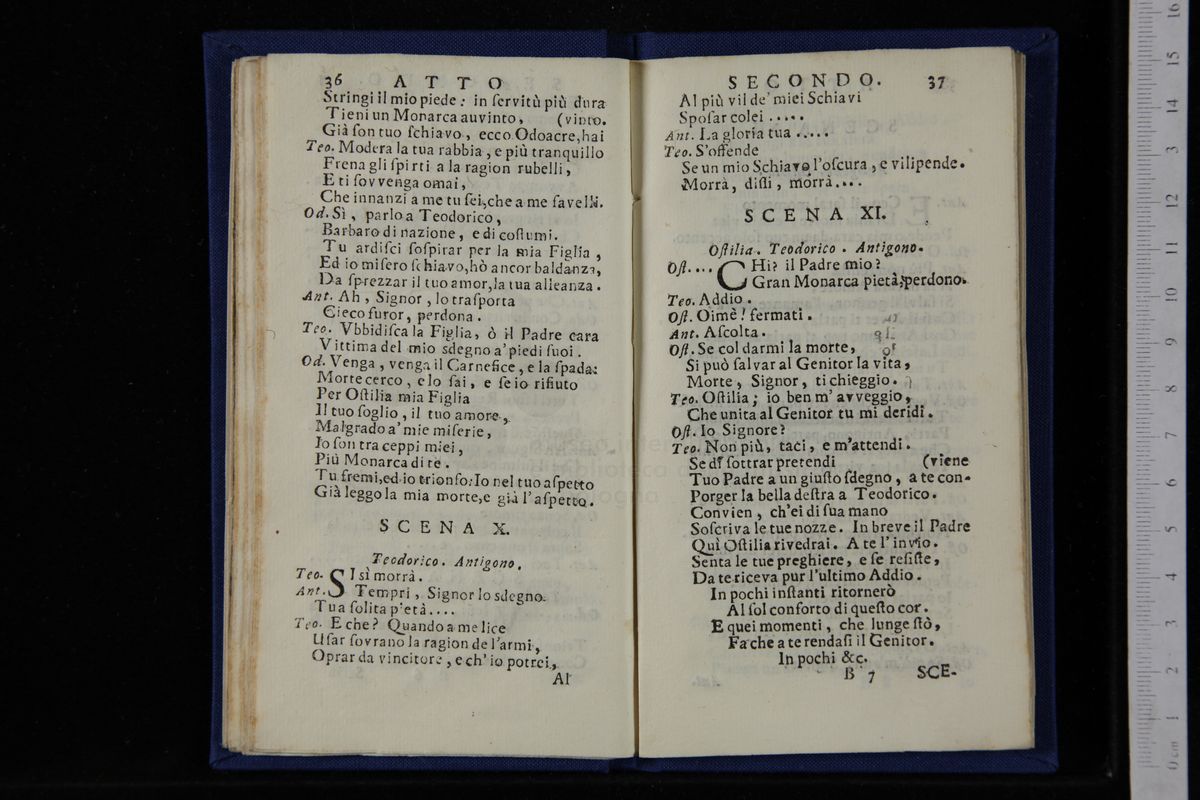 36 ATTO
Stringi il mio piede: in ſervitù più dura
Tieni un Monarca auvinto, (vinto.
Già ſon tuo ſchiavo, ecco Odoacre, hai
Teo. Modera la tua rabbia, e più tranquillo
Frena gli ſpirti a la ragion rubelli,
E ti ſovvenga omai,
Che innanzi a me tu ſei, che a me favelli.
Od. Sì, parlo a Teodorico,
Barbaro di nazione, e di coſtumi.
Tu ardiſci ſoſpirar per la mia Figlia,
Ed io miſero ſchiavo, hò ancor baldanza,
Da ſprezzar il tuo amor, la tua alleanza.
Ant. Ah, Signor, lo traſporta
Cieco furor, perdona.
Teo. Vbbidiſca la Figlia, ò il Padre cara
Vittima del mio sdegno a' piedi ſuoi.
Od. Venga, venga il Carnefice, e la ſpada:
Morte cerco, e lo ſai, e ſe io rifiuto
Per Oſtilia mia Figlia
Il tuo ſoglio, il tuo amore,
Malgrado a' mie miſerie,
Io ſon tra ceppi miei,
Più Monarca di te.
Tu fremi, ed io trionfo: Io nel tuo aſpetto
Già leggo la mia morte, e già l'aſpetto.
SCENA X.
Teodorico. Antigono.
Teo. SI sì morrà.
Ant. Tempri, Signor lo sdegno.
Tua ſolita pietà....
Teo. E che? Quando a me lice
Uſar ſovrano la ragion de l'armi,
Oprar da vincitore, e ch' io potrei,
Al
SECONDO. 37
Al più vil de' miei Schiavi
Spoſar colei.....
Ant. La gloria tua.....
Teo. S'offende
Se un mio Schiavo l'oſcura, e vilipende.
Morrà, diſſi, morrà....
SCENA XI.
Oſtilia. Teodorico. Antigono.
Oſt.... CHi? il Padre mio?
Gran Monarca pietà, perdono.
Teo. Addio.
Oſt. Oimè! fermati.
Ant. Aſcolta.
Oſt. Se col darmi la morte,
Si può ſalvar al Genitor la vita,
Morte, Signor, ti chieggio.
Teo. Oſtilia; io ben m' avveggio,
Che unita al Genitor tu mi deridi.
Oſt. Io Signore?
Teo. Non più, taci, e m'attendi.
Se di ſottrar pretendi (viene
Tuo Padre a un giuſto ſdegno, a te con-
Porger la bella deſtra a Teodorico.
Convien, ch'ei di ſua mano
Soſcriva le tue nozze. In breve il Padre
Quì Oſtilia rivedrai. A te l' invio.
Senta le tue preghiere, e ſe reſiſte,
Da te riceva pur l'ultimo Addio.
In pochi inſtanti ritornerò
Al ſol conforto di queſto cor.
E quei momenti, che lunge ſtò,
Fa che a te rendaſi il Genitor.
In pochi &c.
B 7 SCE-